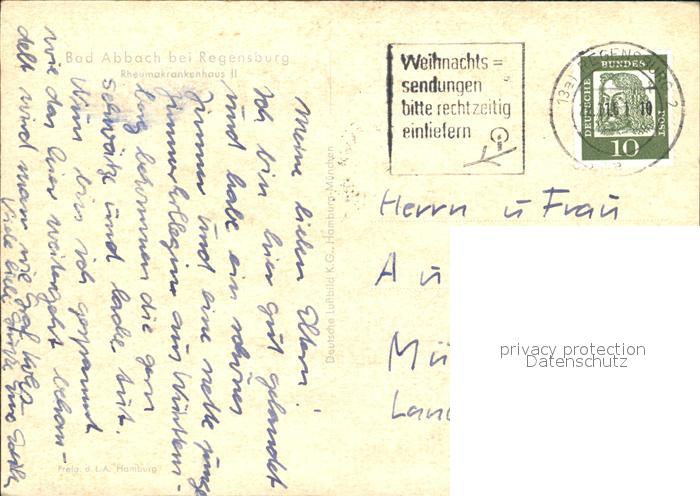 Bad Abbach bei Regensburg
Rheumakrankenhaus II
Meine lieben Eltern!
Ich bin hier gut gelandet
und habe ein schönes
Zimmer und eine nette junge
Zimmerkollegin aus Württem-
berg bekommen die gern
schwätzt und lacht tut.
Nun bin ich gespannt
wie das hier weitergeht behan-
delt wird man
Viele liebe Grüße
Deutsche Luftbild K.G., Hamburg-München
Freig. d. L.A. Hamburg
Weihnachts=
sendungen
bitte rechtzeitig
einliefern
(13a) REGENSBURG 2
DEUTSCHE
BUNDES
POST
10
Herrn u Frau
Au
Mü
Lan
privacy protection
Datenschutz